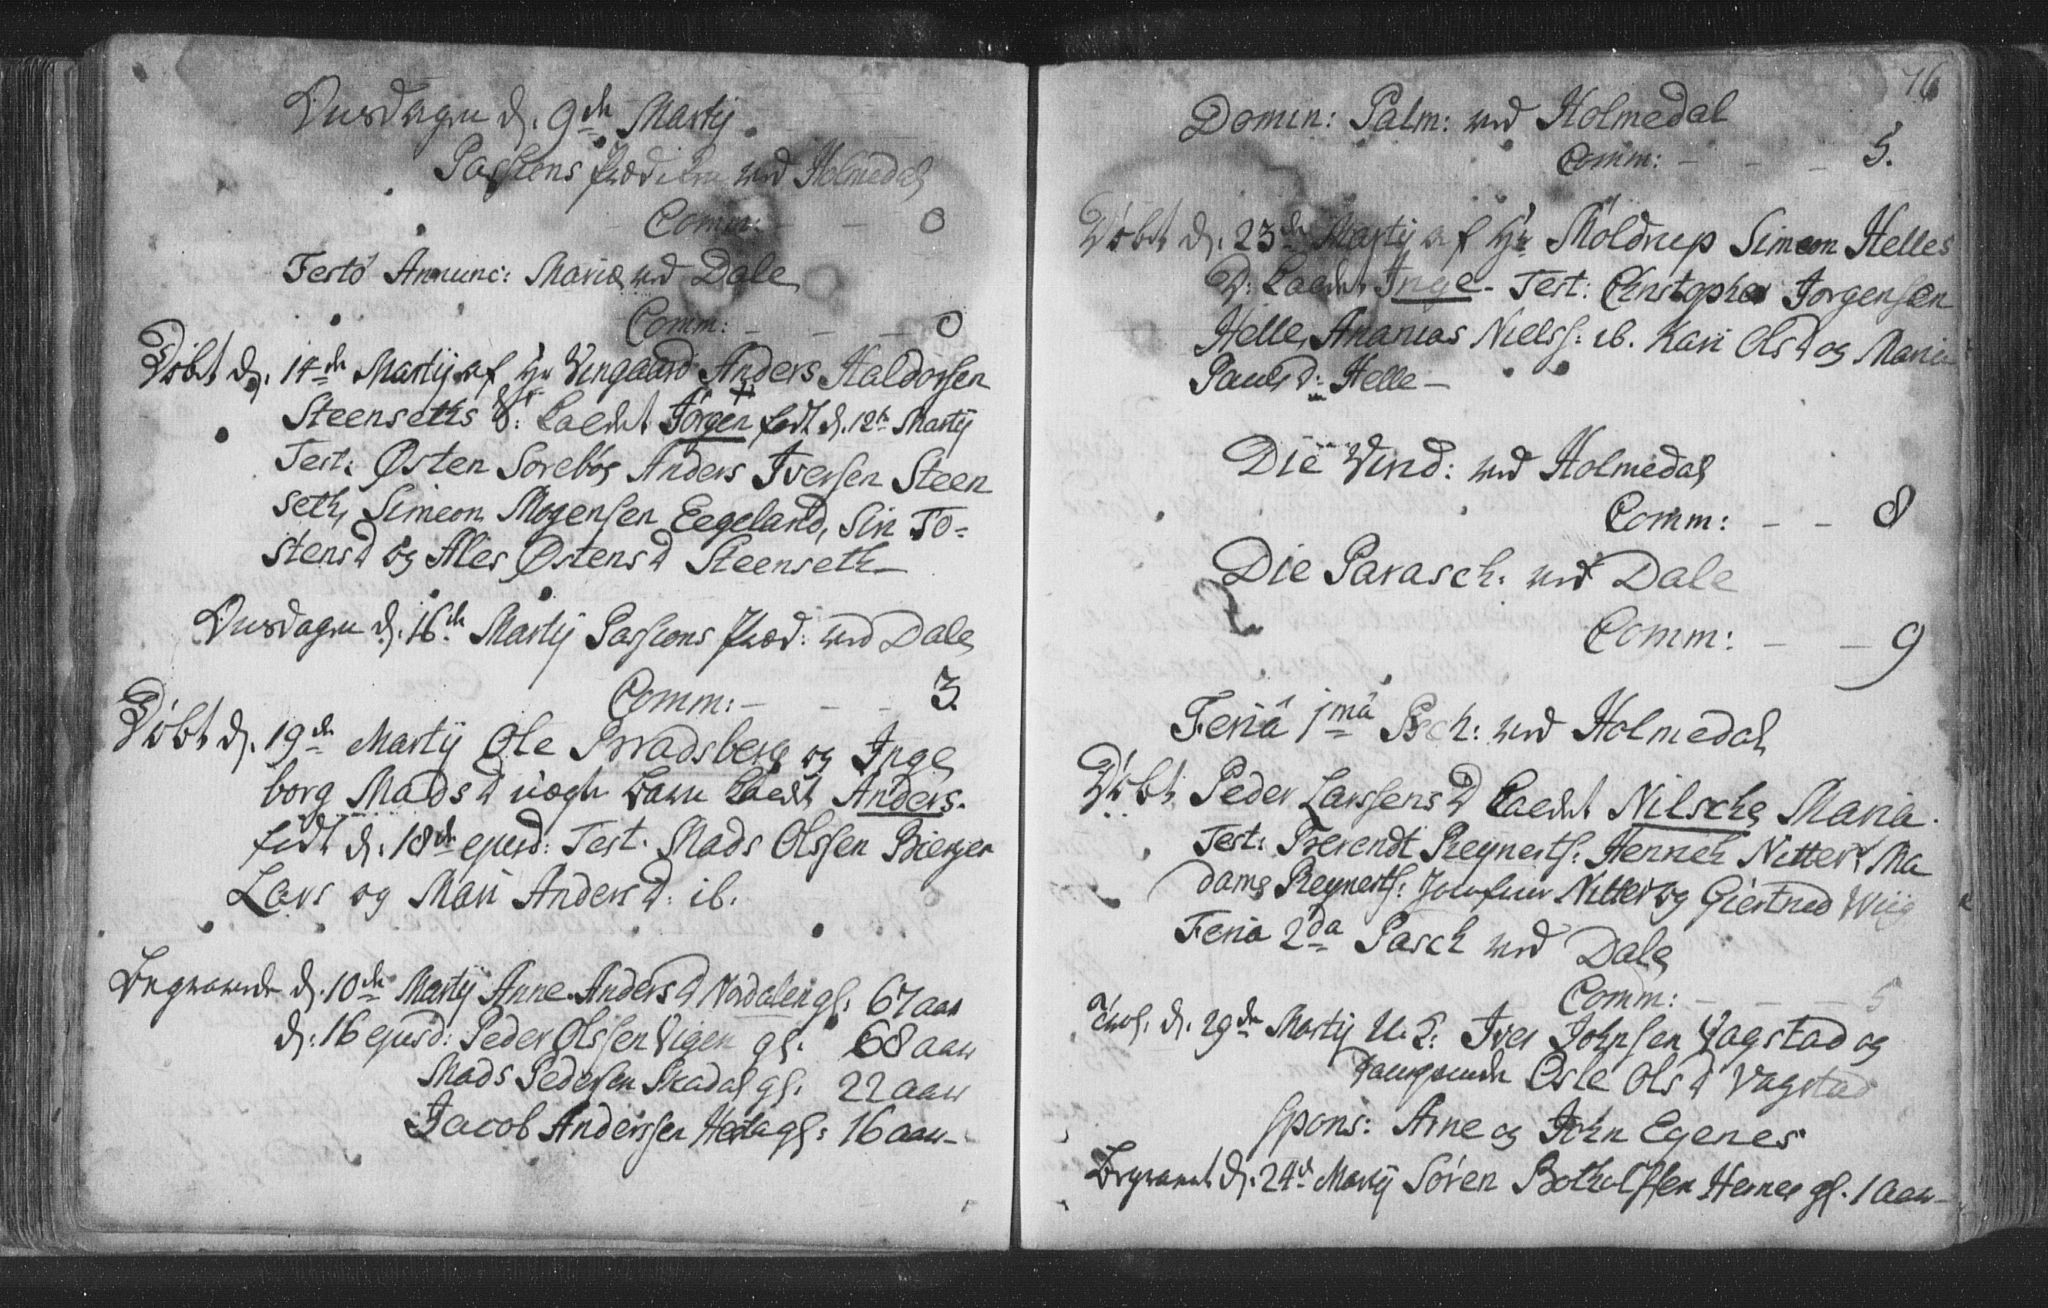 Onsdagen d. 9de Martij
Passions Prædiken ved Holmedal
Comm: - - 0
Festo Annunc: Mariæ ved Dale
Comm: - - - 0
Døbt d. 14de Martij af Hr Vingaard Anders Haldorsen
Steenseths S: kaldet Jørgen født d. 12te Martij
Test: Østen Sorebøe Anders Iversen Steen
seth, Simeon Mogensen Eegeland, Siri To=
stensd og Ales Østensd Steenseth
Onsdagen d. 16de Martij Passions Præd: ved Dale
Comm: - - - 3.
Døbt d. 19de Martij Ole Bradsberg og Inge
borg Madsd uægte barn kaldt Anders.
født d. 18de ejusd: Test. Mads Olssen Bierger
Lars og Mari Andersd: ib.
Begravede d. 10de Martij Anne Andersd Nordalen gl. 67 aar
d: 16 ejusd: Peder Olssen Vigen gl. 68 aar
Mads Pedersen Skadal gl. 22 aar
Jacob Anderssen Herla gl: 16 aar
76
Domin: Palm: ved Holmedal
Comm: - - - 5.
Døbt d. 23de Martij af Hr Møldrup Simeon Helles
D: kaldet Inge - Test: Christopher Jørgensen
Helle, Ananias Nielss: ib. Kari Olsd og Maria
Paulsd: Helle -
Die Vird: ved Holmedal
Comm: - - 8
Die Parasch: ved Dale
Comm: - - 9
Feriâ 1mâ Pasch: ved Holmedal
Døbt Peder Larssens D kaldet Nilsche Maria.
Test: Berendt Reynerts: Henrich Nitter, Ma
dame Reynerts: Jomfrue Nitter og Giertrud Wiig
Feria 2da Pasch ved Dale
Comm: - - - 5
Trol. d. 29de Martij U. K: Iver Johnsen Vagstad og
Danqvinde Osle Olsd Vagstad
Spons: Arne og John Egenes
Begravet d. 24de Martij Søren Botholffsen Hernes gl. 1 aar -